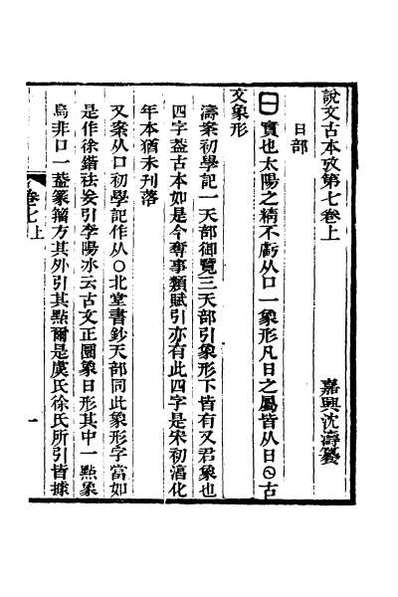 說文古本攷第七卷上
嘉興沈濤纂
日部
日實也太陽之精不虧从口一象形凡日之屬皆从日𡆠古
文象形
濤案初學記一天部御覽三天部引象形下皆有又君象也
四字葢古本如是今奪事類賦引亦有此四字是宋初淳化
年本猶未刊落
又案从口初學記作从〇北堂書鈔天部同此象形字當如
是作徐鍇祛妄引李陽冰云古文正圜象日形其中一點象
烏非口一葢篆籀方其外引其點爾是虞氏徐氏所引皆據
卷七上
一